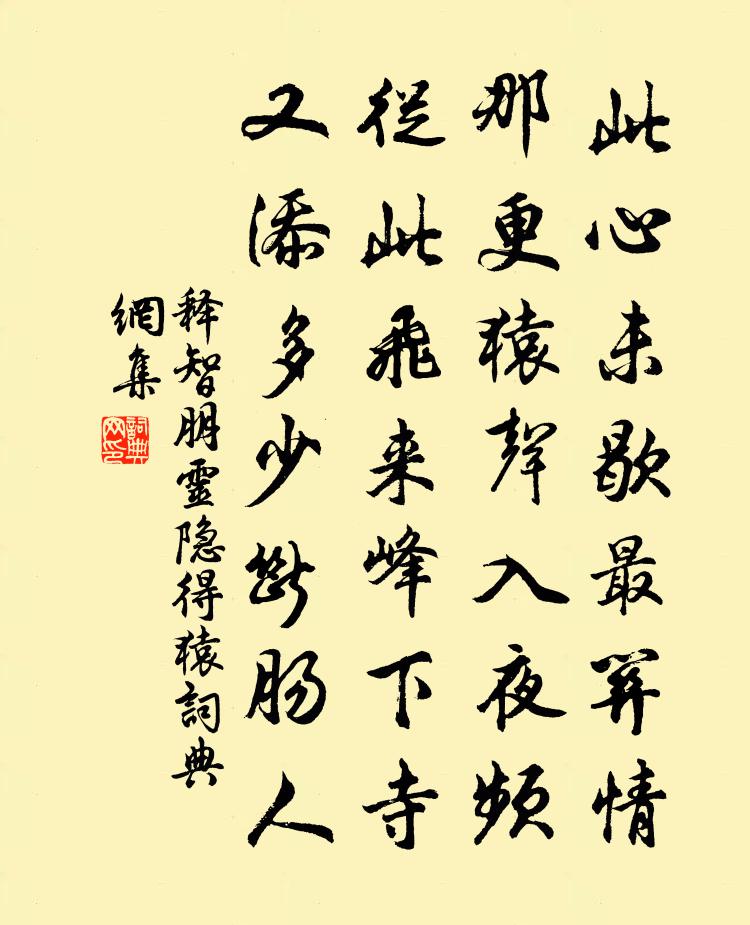 此心未歇最関情
那更猿聲入夜頻
從此飛来峰下寺
又添多少斷腸人
释智朋靈隐得猿詞典
網集
詞典
网印